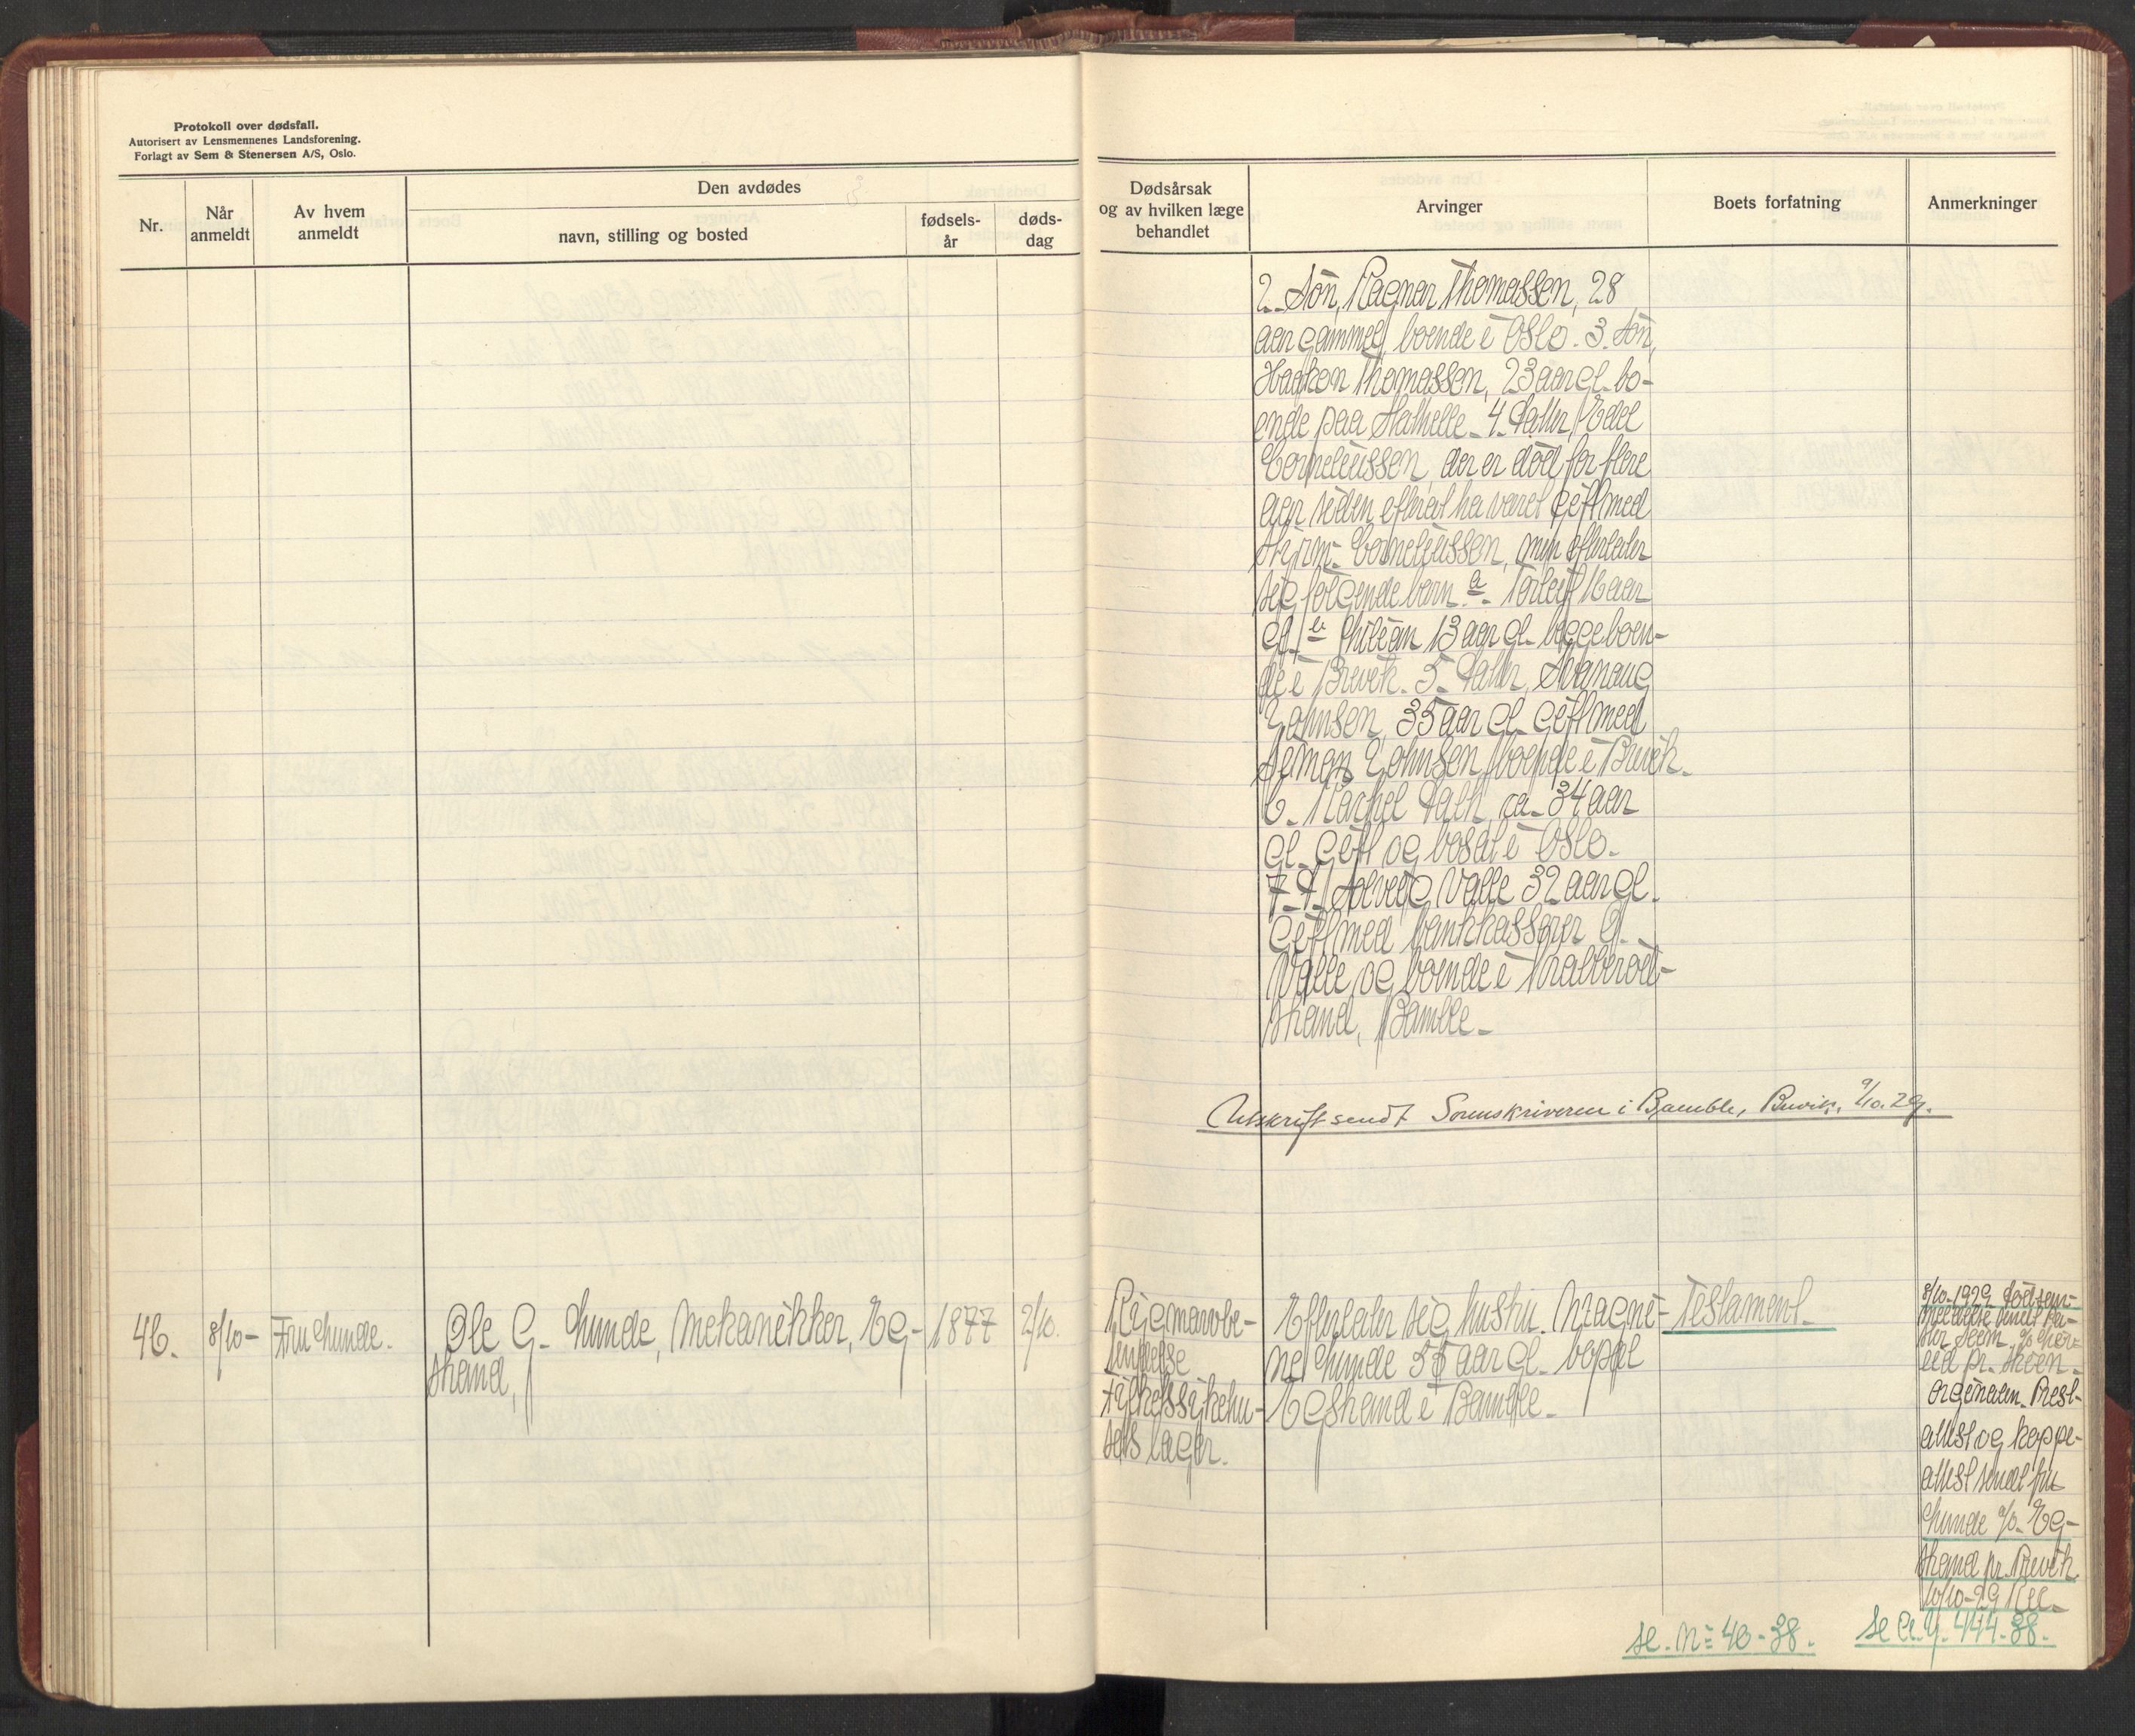 Protokoll over dødsfall.
Autorisert av Lensmennenes Landsforening.
Forlagt av Sem & Stenersen A/S, Oslo.
Nr.
Når anmeldt
Av hvem anmeldt
Den avdødes
navn, stilling og bosted
fødsels-år
døds-dag
Dødsårsak og av hvilken læge behandlet
Arvinger
Boets forfatning
Anmerkninger
2. Søn, Ragnar Thomassen, 28
aar gammel, boende i Oslo. 3. Søn,
Haakon Thomassen, 23 aar gl. bo-
ende paa Stathelle. 4. Datter, Edel
Corneliussen, der er død for flere
aar siden efterat ha været gift med
Corneliussen, efterlater
sig følgende barn a. Torleif 16 aar
gl. b. 13 aar gl. begge boen-
de i Brevik. 5. Datter,
Johnsen, 35 aar gl. gift med
Johnsen, boende i Brevik.
6. Rachel ca. 34 aar
gl. gift og bosat i Oslo.
7. D. Solveig Valle 32 aar gl.
gift med bankkasserer G.
Valle og boende i
strand, Bamble.
Utskrift sendt Sorenskriveren i Bamble, Brevik, 9/10.29.
46.
8/10-
Fru Lunde.
Ole G. Lunde, Mekanikker, Eg-
strand,
1877
2/10.
Rygmarvbe-
tendelse
Fylkessykehu-
sets læger.
Efterlater sig hustru. Magni-
ne Lunde 55 aar gl. bopæl
Egstrand i Bamble.
Testament.
8/10-1929 dødsan-
meldelse sendt
pr. Skien.
Originalen. Prest-
attest og koppe-
attest sendt fru
Lunde a/o. Eg-
strand pr. Brevik
10/10-29
se. N= 40-38.
se 444-38.